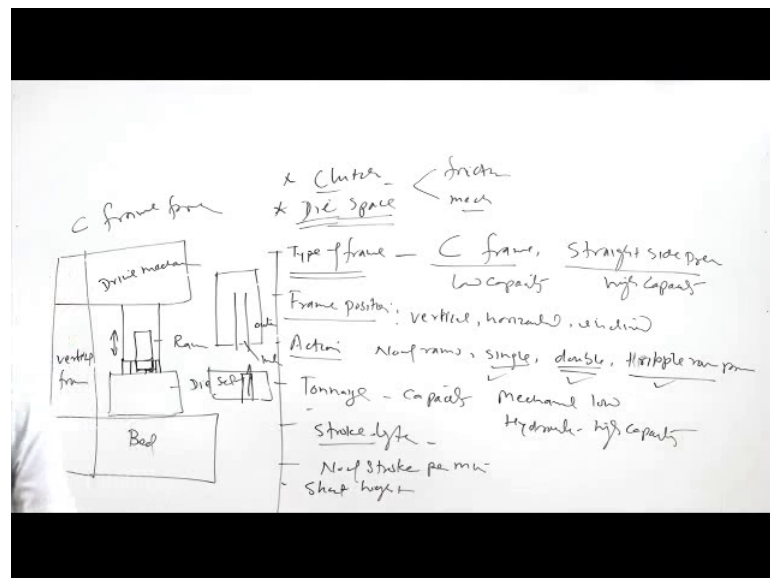 * Clutch < frictn
mech
* Die Space
C frame
Drive mechan
vertical
fram
Ram
Die Set
Bed
Type of frame - C frame, Straight side
low capacity high capacity
Frame position: vertical, horizontal, inclined
Action No of rams, single, double,
Tonnage - capacity Mechanical low
Hydraulic - high capacity
Stroke
No of Stroke per min
Shut height